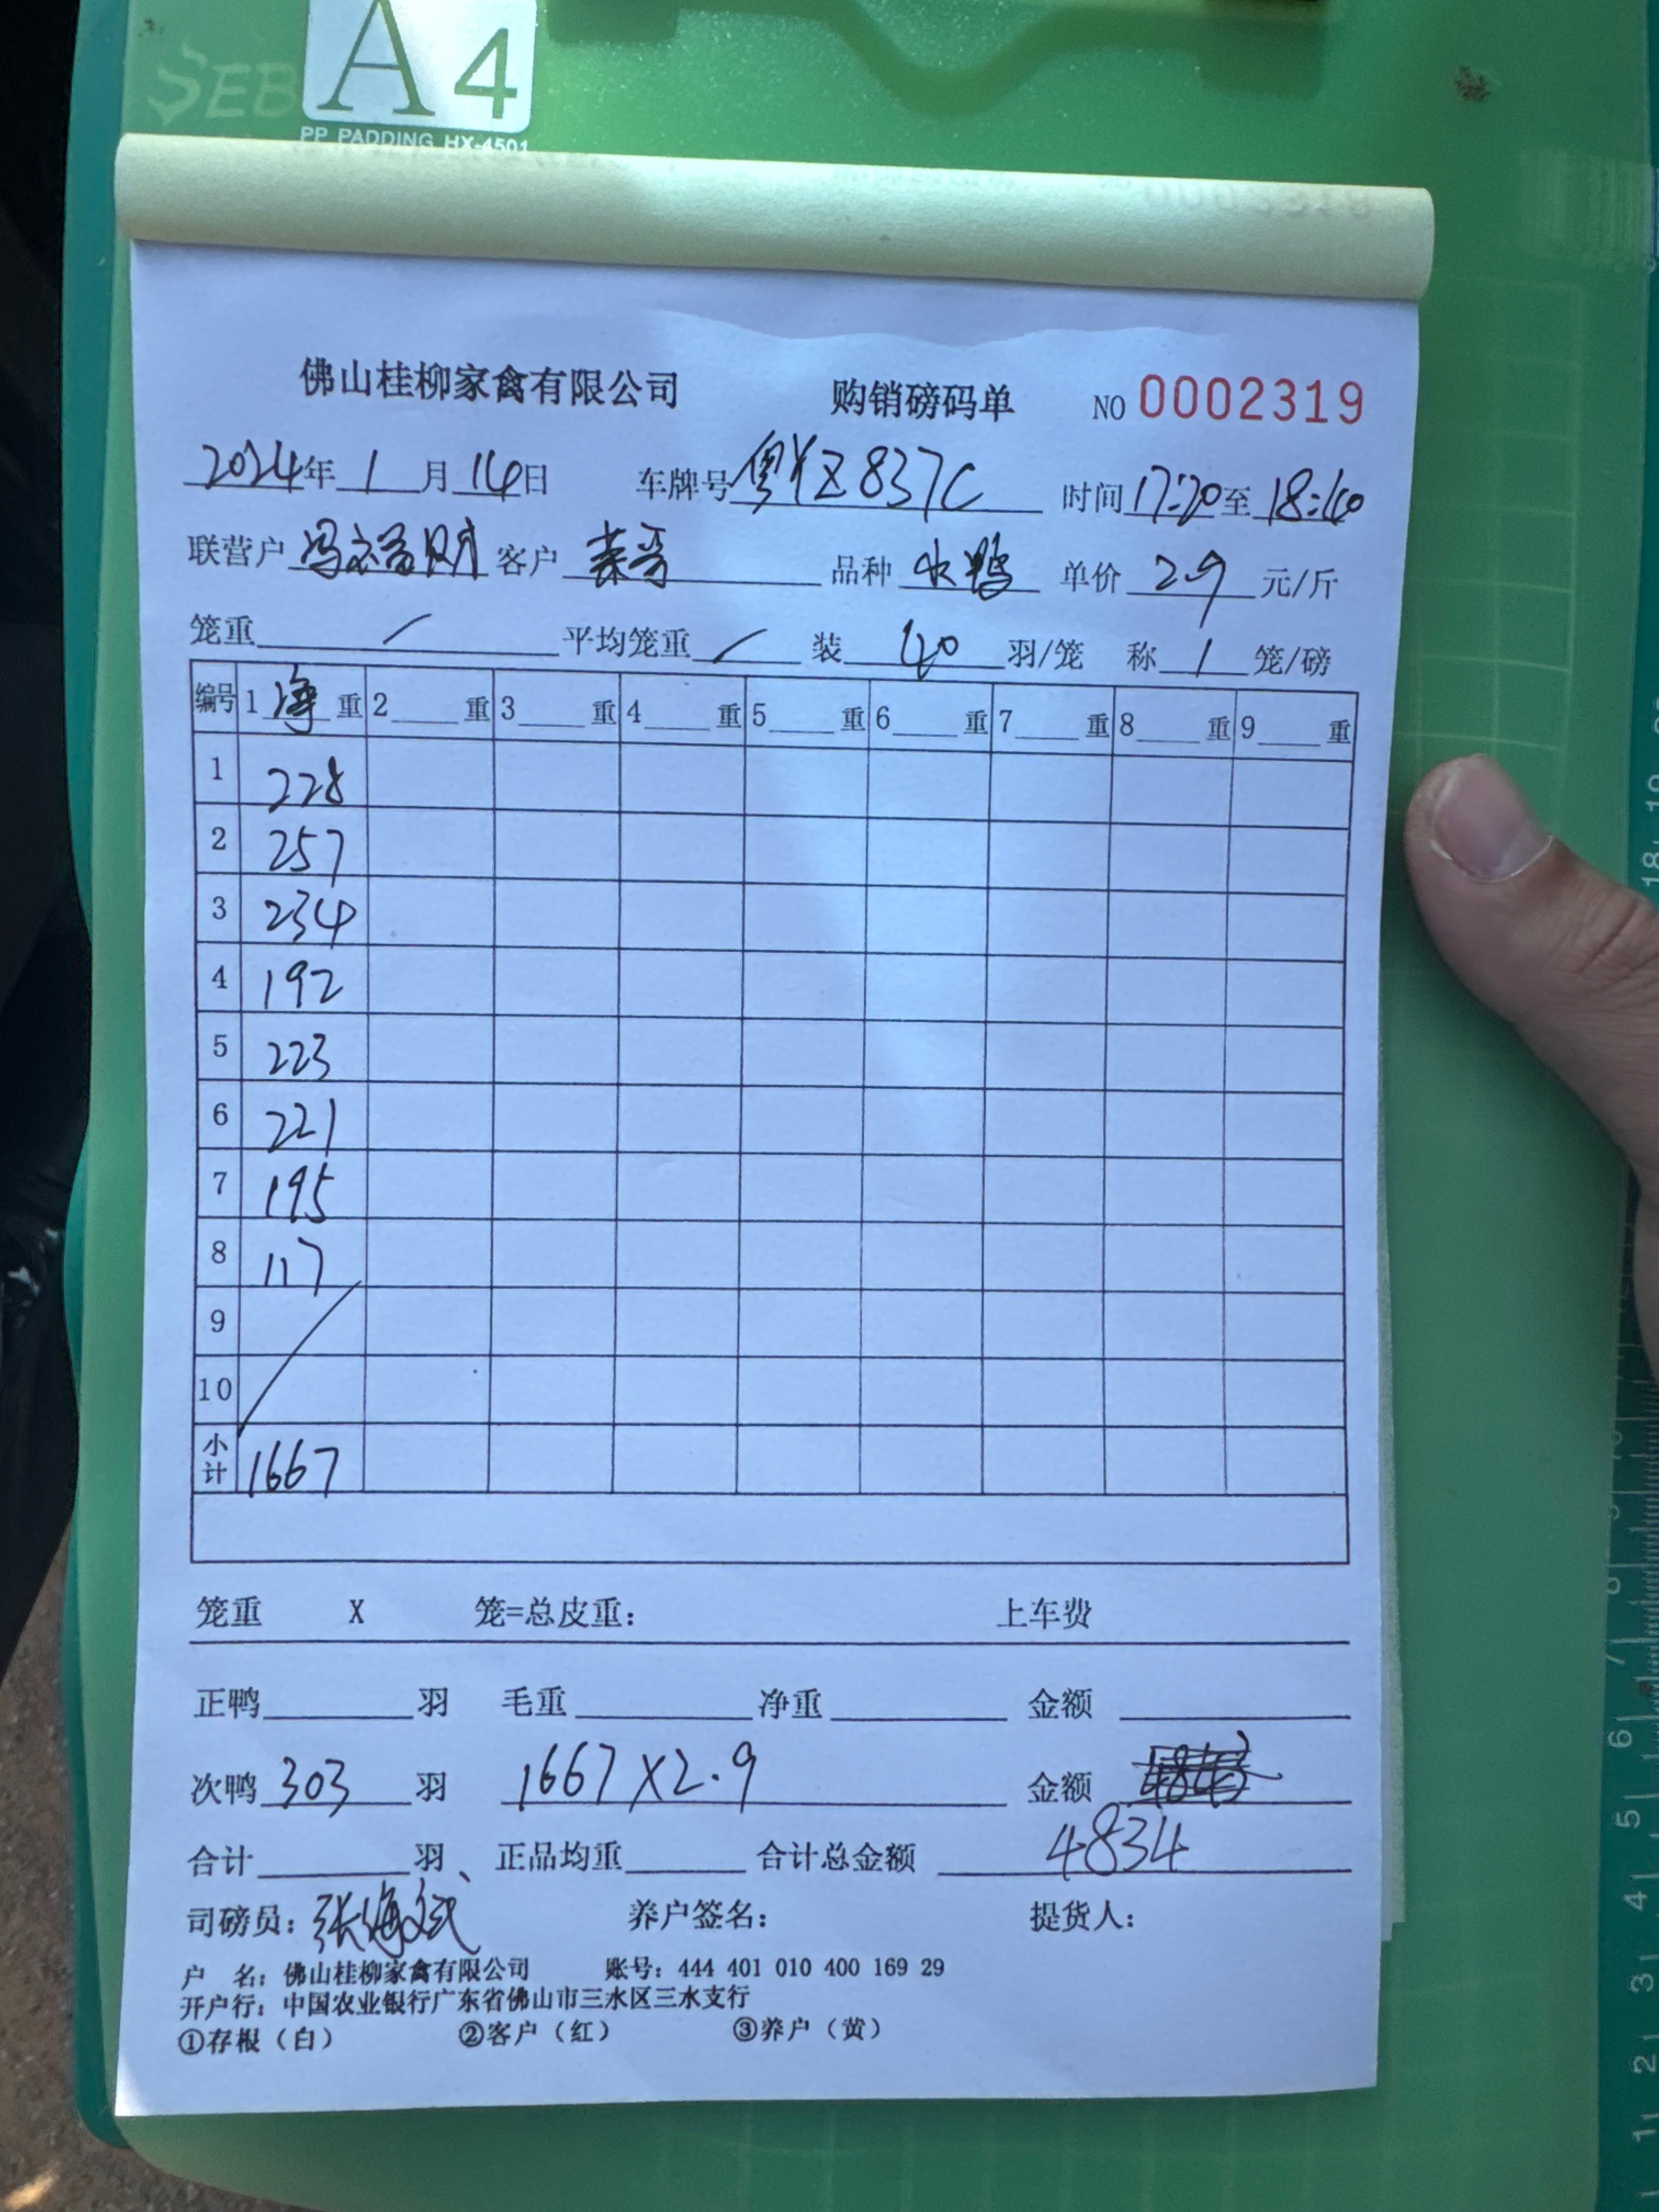 SEB A4
PP PADDING HX-4501
佛山桂柳家禽有限公司 购销磅码单 NO 0002319
2024年1月14日 车牌号粤YZ837C 时间17:20至18:40
联营户 冯 客户 荣哥 品种 水鸭 单价 2.9 元/斤
笼重 / 平均笼重 / 装 40 羽/笼 称 1 笼/磅
编号 1 净 重 2 重 3 重 4 重 5 重 6 重 7 重 8 重 9 重
1 228
2 257
3 234
4 192
5 223
6 221
7 195
8 117
9
10
小计 1667
笼重 X 笼=总皮重： 上车费
正鸭 羽 毛重 净重 金额
次鸭 303 羽 1667×2.9 金额
合计 羽、 正品均重 合计总金额 4834
司磅员：张海斌 养户签名： 提货人：
户 名：佛山桂柳家禽有限公司 账号：444 401 010 400 169 29
开户行：中国农业银行广东省佛山市三水区三水支行
①存根（白） ②客户（红） ③养户（黄）